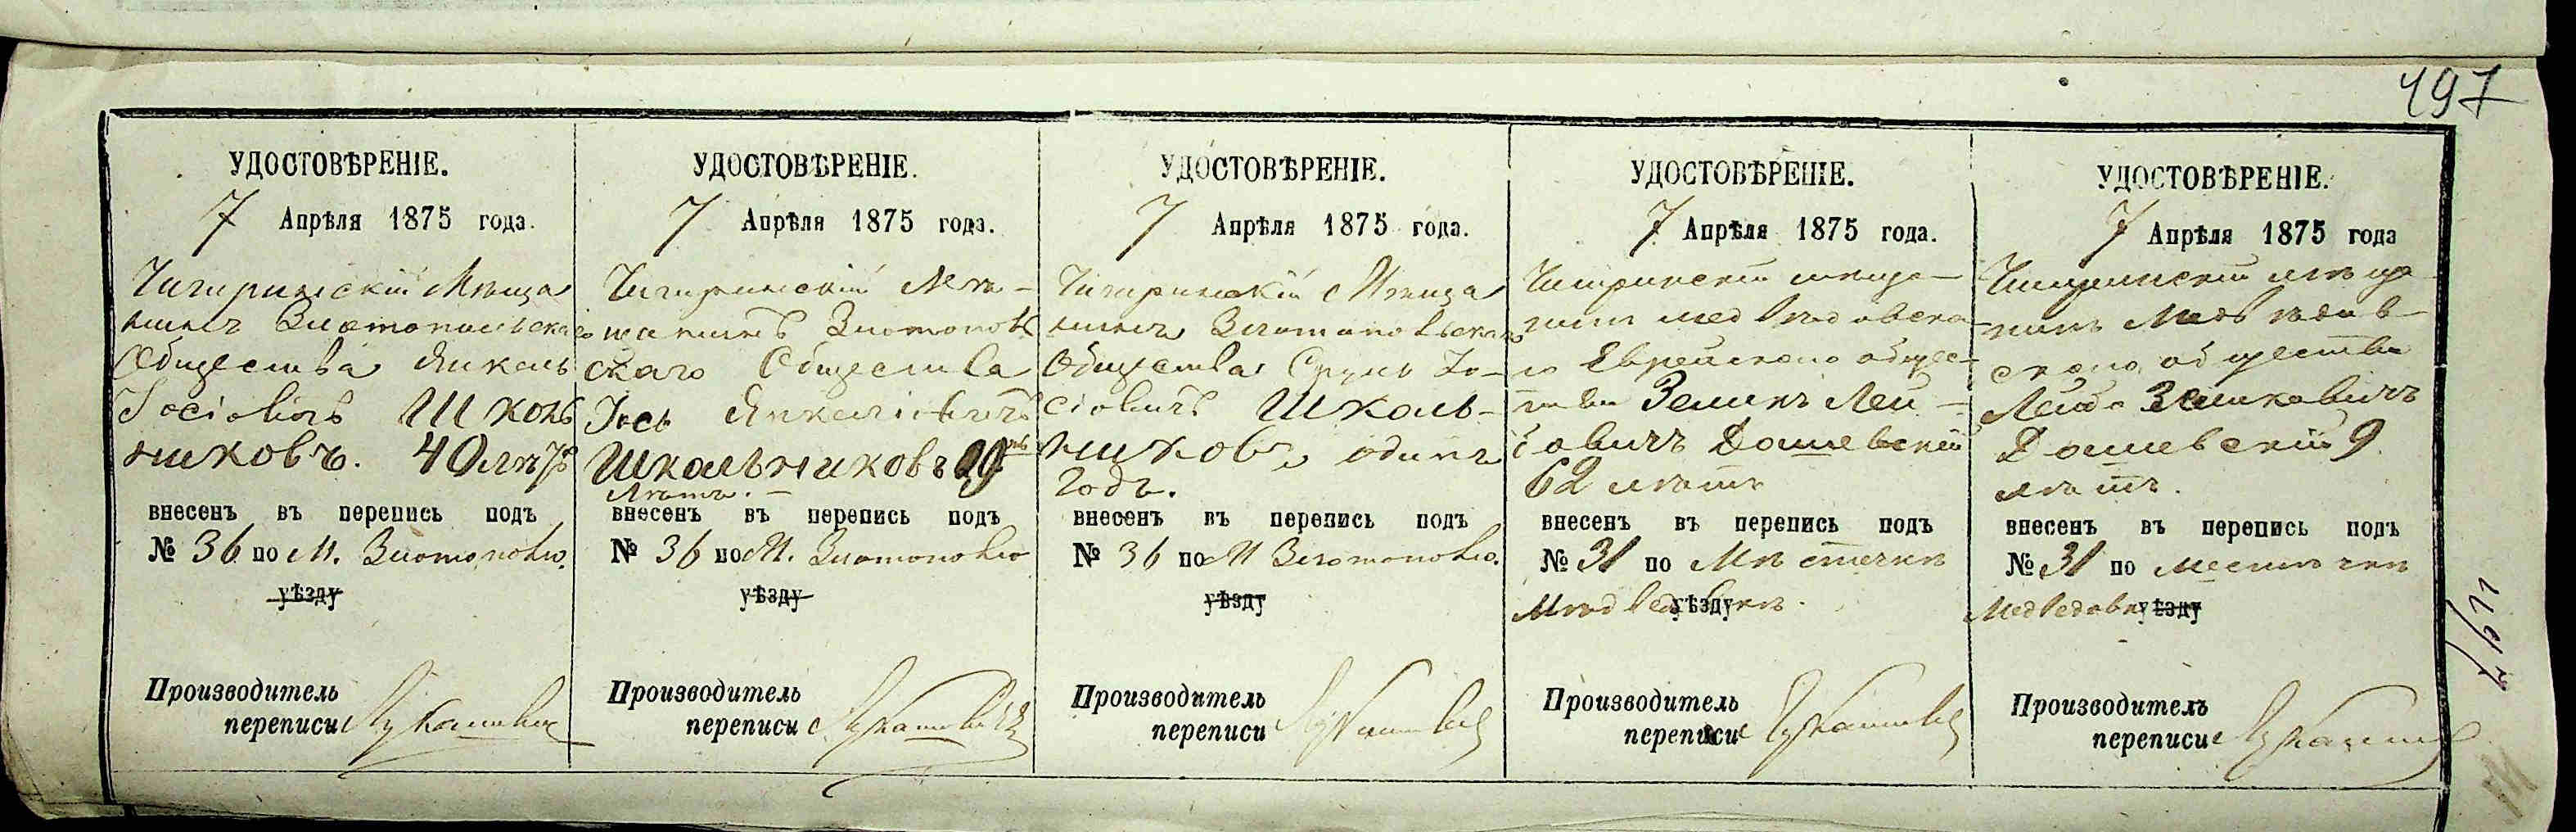 497
УДОСТОВѢРЕНІЕ.
7 Апрѣля 1875 года.
Чигиринскій Мѣща
нинъ Златопольскаго
Общества Янкель
Іосіовичъ Школь
никовъ. 40 лѣтъ
внесенъ въ перепись подъ
№ 36 по М. Златополю.
уѣзду
Производитель
переписи Лукашевич
УДОСТОВѢРЕНІЕ.
7 Апрѣля 1875 года.
Чигиринскій Мѣ-
щанинъ Златополь
скаго Общества
Іось Янкеліовичъ
Школьниковъ 19
лѣтъ. –
внесенъ въ перепись подъ
№ 36 по М. Златополю
уѣзду
Производитель
переписи Лукашевич
УДОСТОВѢРЕНІЕ.
7 Апрѣля 1875 года.
Чигиринскій Мѣща
нинъ Златопольскаго
Общества Сруль Іо-
сіовичъ Школь-
никовъ одинъ
годъ.
внесенъ въ перепись подъ
№ 36 по М Златополю.
уѣзду
Производитель
переписи Лукашевич
УДОСТОВѢРЕНІЕ.
7 Апрѣля 1875 года.
Чигиринскій мѣща-
нинъ медвѣдовска-
го Еврейского общес-
тва Зеликъ Лей-
бовичъ Дашевскій
62 лѣтъ
внесенъ въ перепись подъ
№ 31 по Мѣстечкѣ
Медведовкѣ. уѣзду
Производитель
переписи Лукашевич
УДОСТОВѢРЕНІЕ.
7 Апрѣля 1875 года
Чигиринскій мѣща-
нинъ Медвѣдов-
ского общества
Лейба Зеликовичъ
Дашевскій 9
лѣтъ.
внесенъ въ перепись подъ
№ 31 по местечкѣ
Медведовкѣ уѣзду
Производитель
переписи Лукашевич